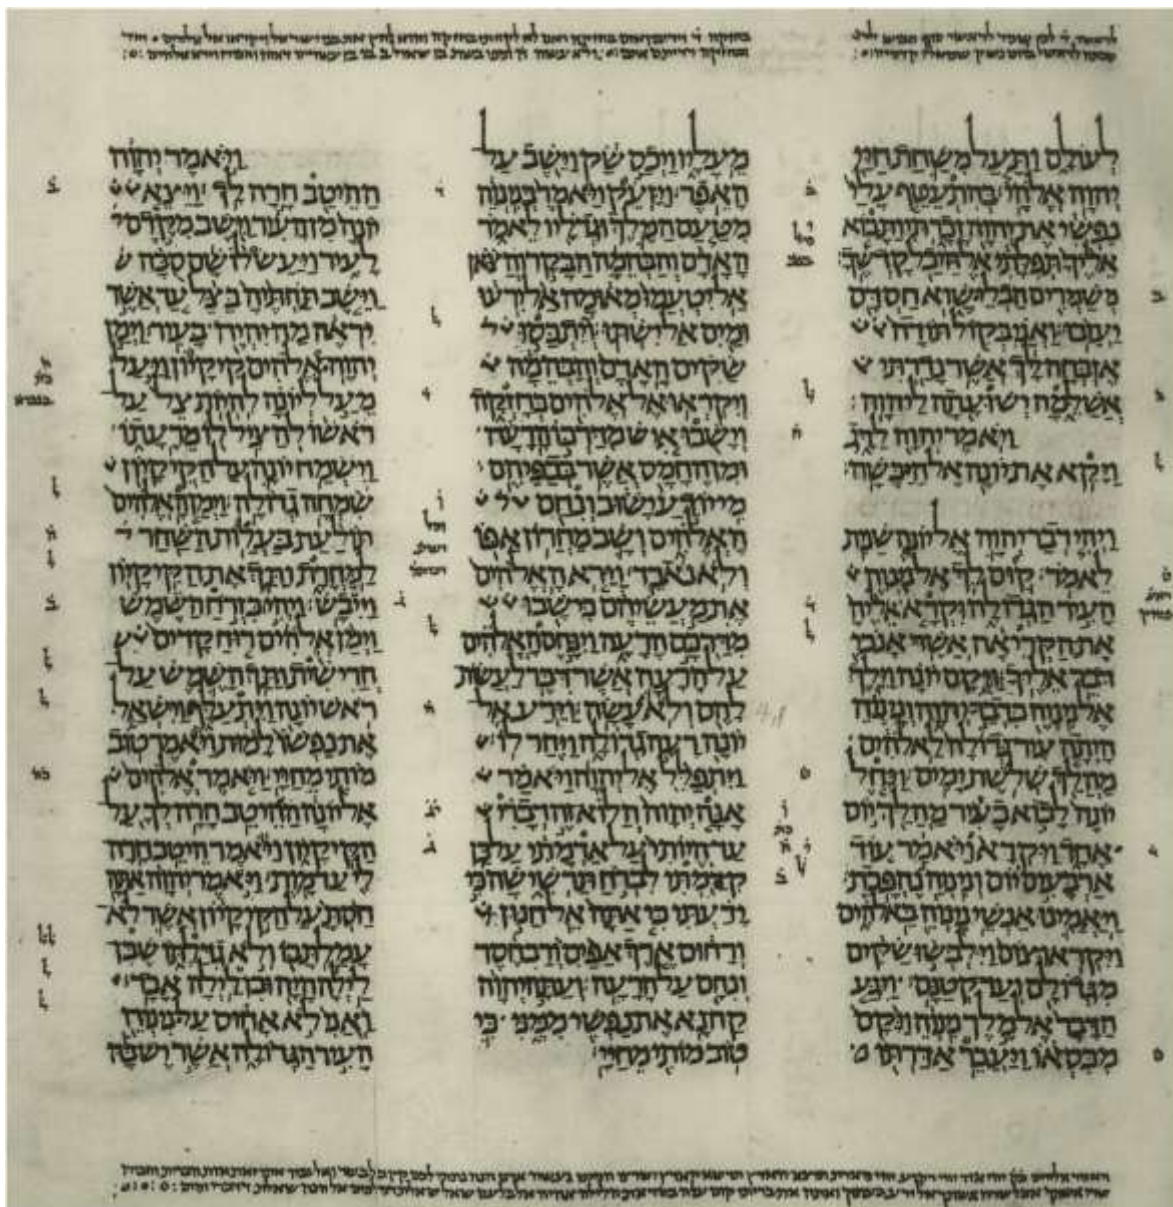 לְעוֹלָם וַתַּעַל מִשַּׁחַת חַיַּי
יְהוָה אֱלֹהָי׃ בְּהִתְעַטֵּף עָלַי
נַפְשִׁי אֶת יְהוָה זָכָרְתִּי וַתָּבוֹא
אֵלֶיךָ תְּפִלָּתִי אֶל הֵיכַל קָדְשֶׁךָ׃
מְשַׁמְּרִים הַבְלֵי שָׁוְא חַסְדָּם
יַעֲזֹבוּ׃ וַאֲנִי בְּקוֹל תּוֹדָה
אֶזְבְּחָה לָּךְ אֲשֶׁר נָדַרְתִּי
אֲשַׁלֵּמָה יְשׁוּעָתָה לַיהוָה׃
וַיֹּאמֶר יְהוָה לַדָּג
וַיָּקֵא אֶת יוֹנָה אֶל הַיַּבָּשָׁה׃
וַיְהִי דְבַר יְהוָה אֶל יוֹנָה שֵׁנִית
לֵאמֹר׃ קוּם לֵךְ אֶל נִינְוֵה
הָעִיר הַגְּדוֹלָה וִּקְרָא אֵלֶיהָ
אֶת הַקְּרִיאָה אֲשֶׁר אָנֹכִי
דֹּבֵר אֵלֶיךָ׃ וַיָּקָם יוֹנָה וַיֵּלֶךְ
אֶל נִינְוֵה כִּדְבַר יְהוָה וְנִינְוֵה
הָיְתָה עִיר גְּדוֹלָה לֵאלֹהִים
מַהֲלַךְ שְׁלֹשֶׁת יָמִים׃ וַיָּחֶל
יוֹנָה לָבוֹא בָעִיר מַהֲלַךְ יוֹם
אֶחָד וַיִּקְרָא וַיֹּאמַר עוֹד
אַרְבָּעִים יוֹם וְנִינְוֵה נֶהְפָּכֶת׃
וַיַּאֲמִינוּ אַנְשֵׁי נִינְוֵה בֵּאלֹהִים
וַיִּקְרְאוּ צוֹם וַיִּלְבְּשׁוּ שַׂקִּים
מִגְּדוֹלָם וְעַד קְטַנָּם׃ וַיִּגַּע
הַדָּבָר אֶל מֶלֶךְ נִינְוֵה וַיָּקָם
מִכִּסְאוֹ וַיַּעֲבֵר אַדַּרְתּוֹ
מֵעָלָיו וַיְכַס שַׂק וַיֵּשֶׁב עַל
הָאֵפֶר׃ וַיַּזְעֵק וַיֹּאמֶר בְּנִינְוֵה
מִטַּעַם הַמֶּלֶךְ וּגְדֹלָיו לֵאמֹר
הָאָדָם וְהַבְּהֵמָה הַבָּקָר וְהַצֹּאן
אַל יִטְעֲמוּ מְאוּמָה אַל יִרְעוּ
וּמַיִם אַל יִשְׁתּוּ׃ וְיִתְכַּסּוּ
שַׂקִּים הָאָדָם וְהַבְּהֵמָה
וְיִקְרְאוּ אֶל אֱלֹהִים בְּחָזְקָה
וְיָשֻׁבוּ אִישׁ מִדַּרְכּוֹ הָרָעָה
וּמִן הֶחָמָס אֲשֶׁר בְּכַפֵּיהֶם׃
מִי יוֹדֵעַ יָשׁוּב וְנִחַם
הָאֱלֹהִים וְשָׁב מֵחֲרוֹן אַפּוֹ
וְלֹא נֹאבֵד׃ וַיַּרְא הָאֱלֹהִים
אֶת מַעֲשֵׂיהֶם כִּי שָׁבוּ
מִדַּרְכָּם הָרָעָה וַיִּנָּחֶם הָאֱלֹהִים
עַל הָרָעָה אֲשֶׁר דִּבֶּר לַעֲשׂוֹת
לָהֶם וְלֹא עָשָׂה׃ וַיֵּרַע אֶל
יוֹנָה רָעָה גְדוֹלָה וַיִּחַר לוֹ׃
וַיִּתְפַּלֵּל אֶל יְהוָה וַיֹּאמַר
אָנָּה יְהוָה הֲלוֹא זֶה דְבָרִי
עַד הֱיוֹתִי עַל אַדְמָתִי עַל כֵּן
קִדַּמְתִּי לִבְרֹחַ תַּרְשִׁישָׁה כִּי
יָדַעְתִּי כִּי אַתָּה אֵל חַנּוּן
וְרַחוּם אֶרֶךְ אַפַּיִם וְרַב חֶסֶד
וְנִחָם עַל הָרָעָה׃ וְעַתָּה יְהוָה
קַח נָא אֶת נַפְשִׁי מִמֶּנִּי כִּי
טוֹב מוֹתִי מֵחַיָּי׃
וַיֹּאמֶר יְהוָה
הַהֵיטֵב חָרָה לָךְ׃ וַיֵּצֵא
יוֹנָה מִן הָעִיר וַיֵּשֶׁב מִקֶּדֶם
לָעִיר וַיַּעַשׂ לוֹ שָׁם סֻכָּה
וַיֵּשֶׁב תַּחְתֶּיהָ בַּצֵּל עַד אֲשֶׁר
יִרְאֶה מַה יִּהְיֶה בָּעִיר׃ וַיְמַן
יְהוָה אֱלֹהִים קִיקָיוֹן וַיַּעַל
מֵעַל לְיוֹנָה לִהְיוֹת צֵל עַל
רֹאשׁוֹ לְהַצִּיל לוֹ מֵרָעָתוֹ
וַיִּשְׂמַח יוֹנָה עַל הַקִּיקָיוֹן
שִׂמְחָה גְדוֹלָה׃ וַיְמַן הָאֱלֹהִים
תּוֹלַעַת בַּעֲלוֹת הַשַּׁחַר
לַמָּחֳרָת וַתַּךְ אֶת הַקִּיקָיוֹן
וַיִּיבָשׁ׃ וַיְהִי כִּזְרֹחַ הַשֶּׁמֶשׁ
וַיְמַן אֱלֹהִים רוּחַ קָדִים
חֲרִישִׁית וַתַּךְ הַשֶּׁמֶשׁ עַל
רֹאשׁ יוֹנָה וַיִּתְעַלָּף וַיִּשְׁאַל
אֶת נַפְשׁוֹ לָמוּת וַיֹּאמֶר טוֹב
מוֹתִי מֵחַיָּי׃ וַיֹּאמֶר אֱלֹהִים
אֶל יוֹנָה הַהֵיטֵב חָרָה לְךָ עַל
הַקִּיקָיוֹן וַיֹּאמֶר הֵיטֵב חָרָה
לִי עַד מָוֶת׃ וַיֹּאמֶר יְהוָה אַתָּה
חַסְתָּ עַל הַקִּיקָיוֹן אֲשֶׁר לֹא
עָמַלְתָּ בּוֹ וְלֹא גִדַּלְתּוֹ שֶׁבִּן
לַיְלָה הָיָה וּבִן לַיְלָה אָבָד׃
וַאֲנִי לֹא אָחוּס עַל נִינְוֵה
הָעִיר הַגְּדוֹלָה אֲשֶׁר יֶשׁ בָּהּ